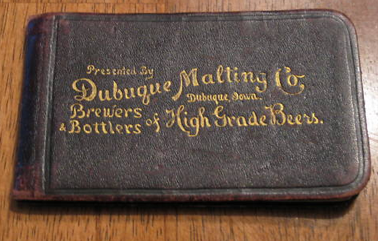 Presented By
Dubuque Malting Co.
Dubuque, Iowa.
Brewers
& Bottlers of High Grade Beers.